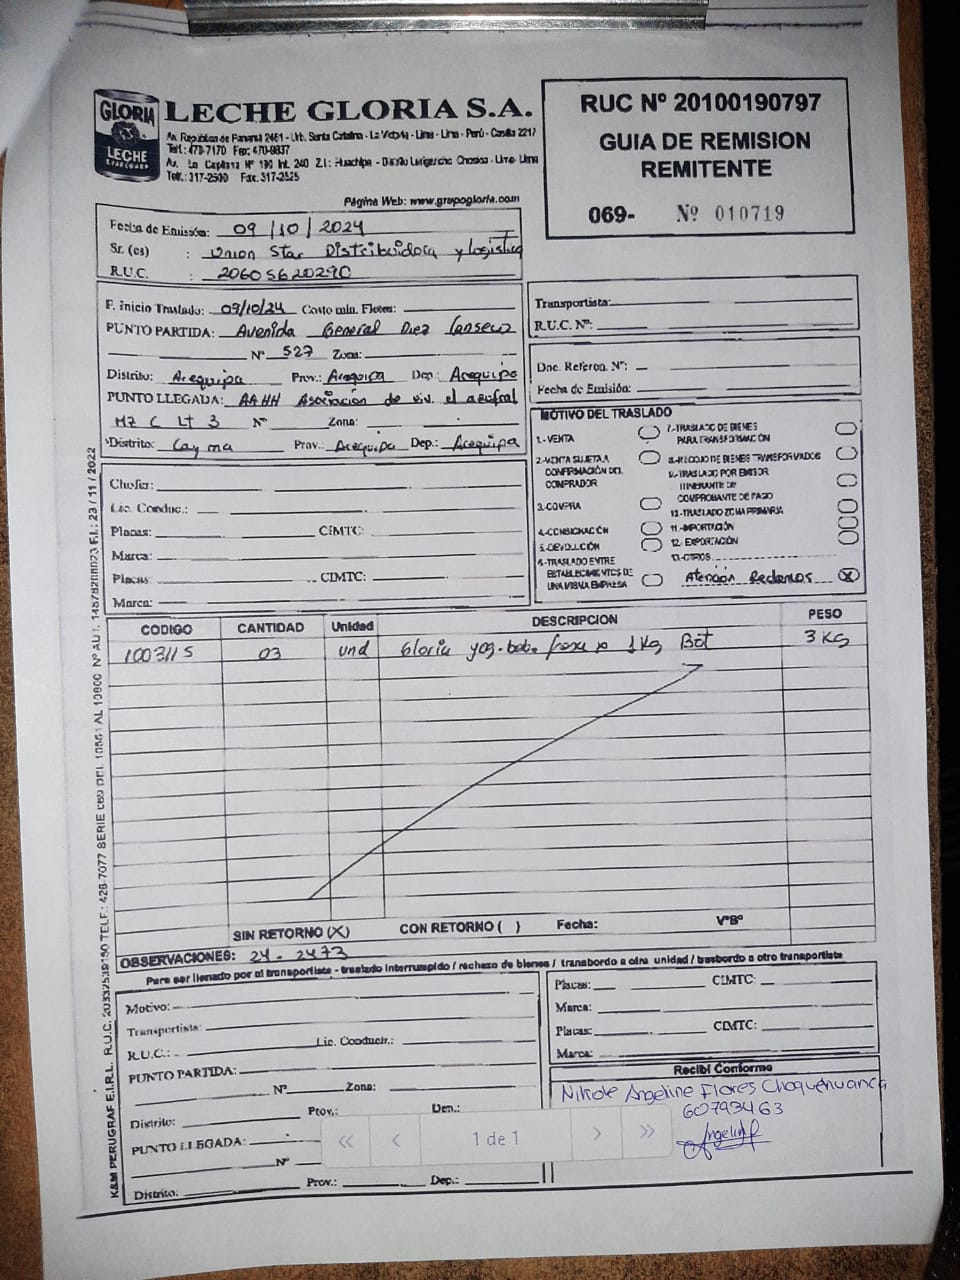 GLORIA
LECHE
LECHE GLORIA S.A.
Av. República de Panamá 2461 - Urb. Santa Catalina - La Victoria - Lima - Lima - Perú - Casilla 2217
Telf.: 470-7170 Fax: 470-9837
Av. La Capitana Nº 190 Int. 240 Z.I.: Huachipa - Lurigancho Chosica - Lima - Lima
Telf.: 317-2500 Fax. 317-2525
Página Web: www.grupogloria.com
RUC Nº 20100190797
GUIA DE REMISION
REMITENTE
069- Nº 010719
Fecha de Emisión: 09/10/2024
Sr. (es) : Union Star Distribuidora y logística
R.U.C. : 20605620290
F. Inicio Traslado: 09/10/24 Costo mín. Fletes:
PUNTO PARTIDA: Avenida General Diez Canseco
Nº 527 Zona:
Distrito: Arequipa Prov.: Arequipa Dep: Arequipa
PUNTO LLEGADA: AAHH Asociación de viv. el azufral
MZ C LT 3 Nº Zona:
Distrito: Cayma Prov.: Arequipa Dep.: Arequipa
Transportista:
R.U.C. Nº:
Doc. Referen. Nº:
Fecha de Emisión:
MOTIVO DEL TRASLADO
1.-VENTA
2.-VENTA SUJETA A
CONFIRMACIÓN DEL
COMPRADOR
3.-COMPRA
4.-CONSIGNACIÓN
5.-DEVOLUCIÓN
6.-TRASLADO ENTRE
ESTABLECIMIENTOS DE
UNA MISMA EMPRESA
7.-TRASLADO DE BIENES
PARA TRANSFORMACIÓN
8.-RECOJO DE BIENES TRANSFORMADOS
9.-TRASLADO POR EMISOR
ITINERANTE DE
COMPROBANTE DE PAGO
10.-TRASLADO ZONA PRIMARIA
11.-IMPORTACIÓN
12.-EXPORTACIÓN
13.-OTROS
Atención Reclamos X
Chofer:
Lic. Conduc.:
Placas: CIMTC:
Marca:
Placas: CIMTC:
Marca:
CODIGO CANTIDAD Unidad DESCRIPCION PESO
1003115 03 und Gloria yog. bebe fresa x 1Kg Bot 3 KG
SIN RETORNO (X) CON RETORNO ( ) Fecha: VºBº
OBSERVACIONES: 24 - 2473
Para ser llenado por el transportista - traslado interrumpido / rechazo de bienes / transbordo a otra unidad / trasbordo a otro transportista
Motivo:
Transportista:
R.U.C.: Lic. Conducir.:
PUNTO PARTIDA:
Nº Zona:
Distrito: Prov.: Den.:
PUNTO LLEGADA:
Nº
Distrito: Prov.: Dep.:
Placas: CIMTC:
Marca:
Placas: CIMTC:
Marca:
Recibí Conforme
Nikole Angeline Flores Choquehuanca
60793463
« < 1 de 1 > »